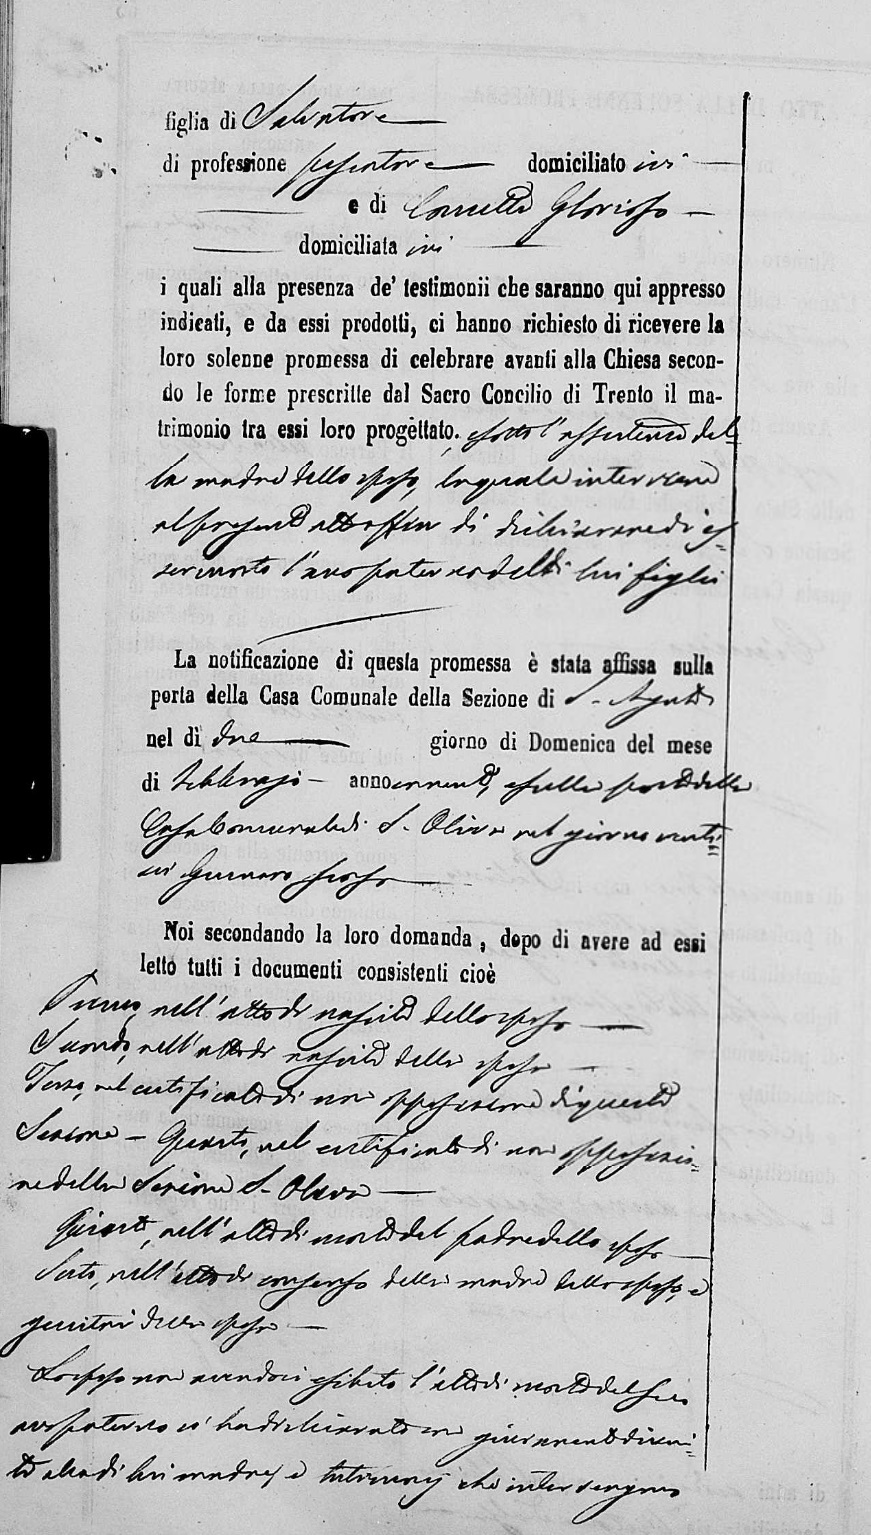 figlia di Salvatore
di professione pescatore domiciliato ivi
e di Concetta Glorioso
domiciliata ivi
i quali alla presenza de' testimonii che saranno qui appresso
indicati, e da essi prodotti, ci hanno richiesto di ricevere la
loro solenne promessa di celebrare avanti alla Chiesa secon-
do le forme prescritte dal Sacro Concilio di Trento il ma-
trimonio tra essi loro progettato. sotto l'assistenza del=
la madre dello sposo, la quale interviene
al presente atto affin di dichiarare di es=
ser morto l'avo paterno del di lui figlio
La notificazione di questa promessa è stata affissa sulla
porta della Casa Comunale della Sezione di S. Agata
nel dì due giorno di Domenica del mese
di Febbrajo anno corrente, e sulla porta della
Casa Comunale di S. Oliva nel giorno venti=
sei Gennaro scorso
Noi secondando la loro domanda, dopo di avere ad essi
letto tutti i documenti consistenti cioè
Primo, nell'atto di nascita dello sposo
Secondo, nell'atto di nascita della sposa
Terzo, nel certificato di non opposizione di questa
Sezione - Quarto, nel certificato di non opposizio=
ne della Sezione S. Oliva
Quinto, nell'atto di morte del padre dello sposo
Sesto, nell'atto di consenso della madre dello sposo, e
genitori della sposa
Lo sposo non avendoci esibito l'atto di morte del suo
avo paterno ci ha dichiarato con giuramento di uni=
ta alla di lui madre, e testimonj che intervengono